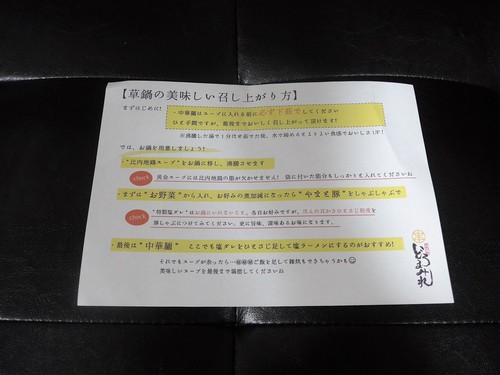 【草鍋の美味しい召し上がり方】
まずはじめに!
・中華麺はスープに入れる前に必ず下茹でしてください
ひと手間ですが、最後までおいしく召し上がって頂けます!
※沸騰した湯で1分ほど茹でた後、水で締めるとより良い食感でおいしさUP!
では、お鍋を用意しましょう!
・"比内地鶏スープ"をお鍋に移し、沸騰させます
check
黄金スープには比内地鶏の脂が欠かせません! 袋に付いた脂分もしっかりと入れてくださいね
・まずは"お野菜"から入れ、お好みの煮加減になったら"やまと豚"をしゃぶしゃぶで
check
"特製塩ダレ"はお鍋にいれないで!、各自お好みですが、
豚しゃぶにつけてみてください。更に旨味、深味あるお味になります。
・最後は"中華麺" ここでも塩ダレをひとさじ足して塩ラーメンにするのがおすすめ!
それでもスープが余ったら…ご飯を足して雑炊もできちゃうかも
美味しいスープを最後まで堪能してくださいね